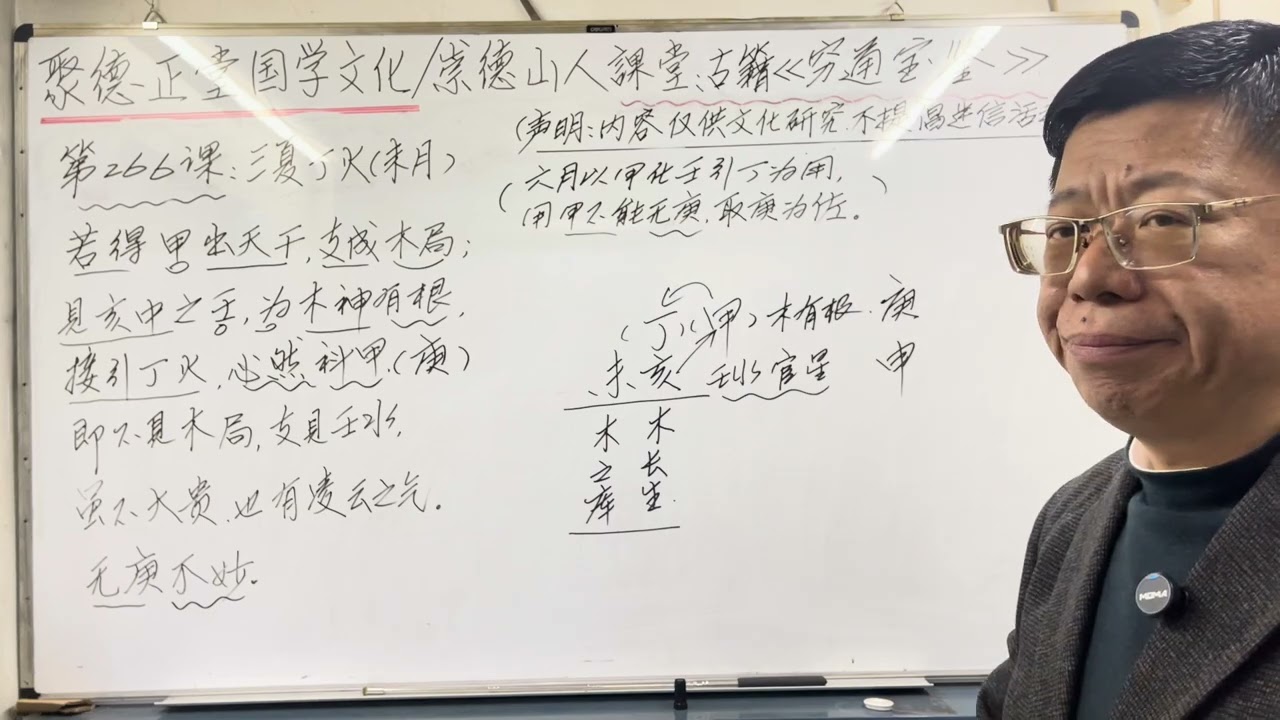 聚德正堂国学文化/崇德山人課堂:古籍《穷通宝鉴》
(声明:内容仅供文化研究.不提倡迷信活
第266课:三夏丁火(未月)
(六月以甲化壬引丁为用,
用甲不能无庚.取庚为佐。)
若得甲出天干,支成木局;
見亥中之壬,为木神有根,
接引丁火,必然科甲.(庚)
即不見木局,支見壬水,
虽不大贵.也有凌云之气.
无庚不妙.
(丁火甲)木有根.庚
未亥 壬水官星 申
木 木
之 长
库 生.
MOMA